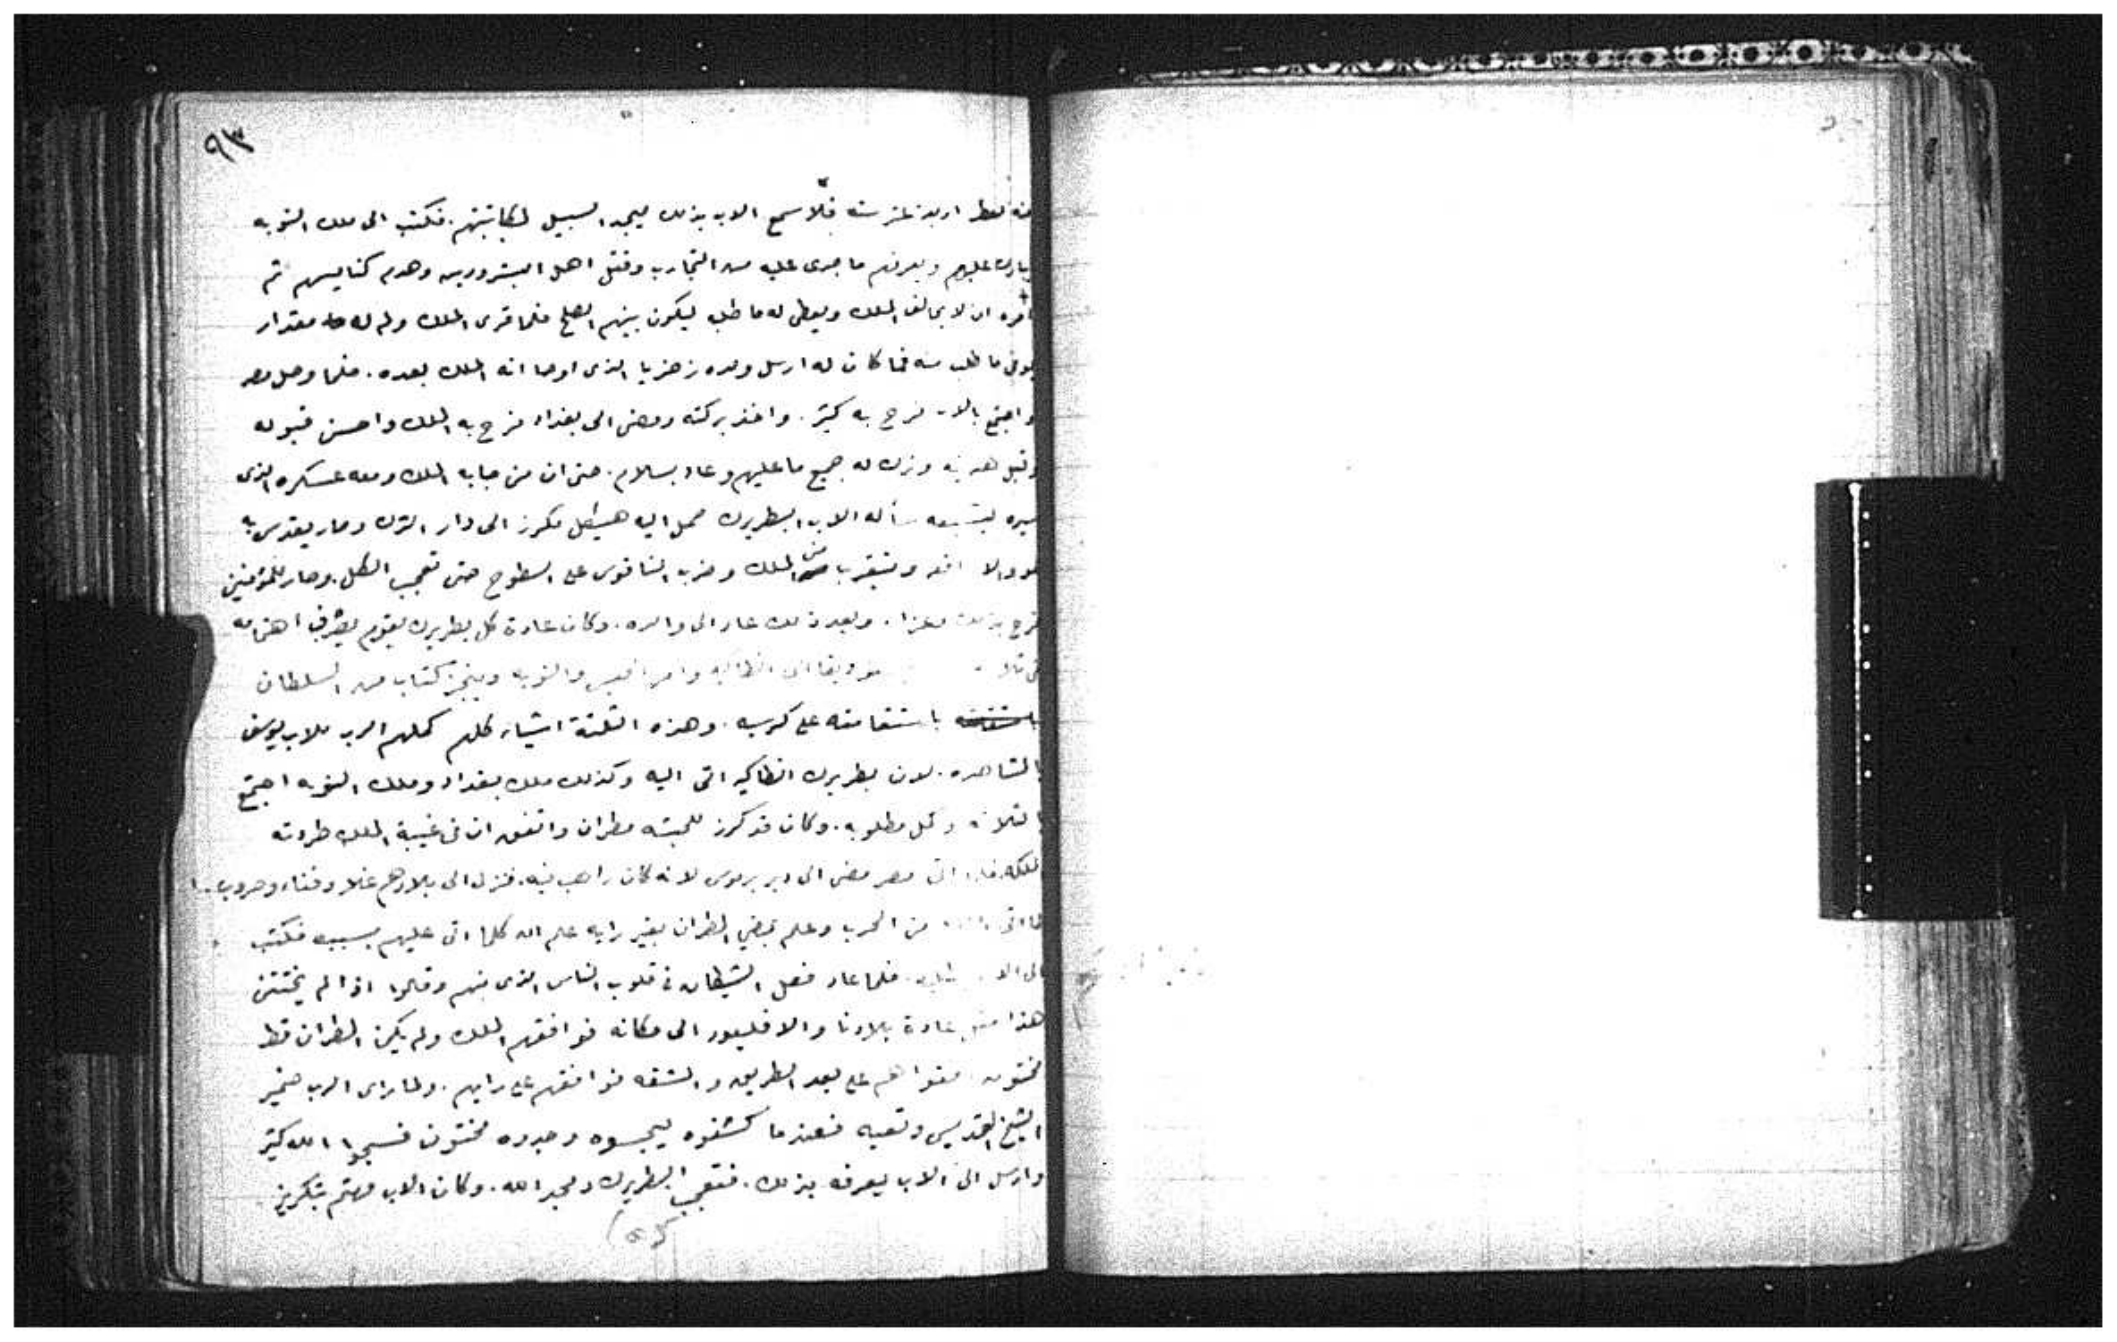 ٩٣
اربعة عشر سنه فلما سمع الاب بذلك ليجد السبيل لمكاتبتهم. فكتب الى ملك النوبه
يبارك عليهم ويعرفهم ما جرى عليه من التجارب وقتل اهل البشروريين وهدم كنايسهم ثم
امره ان لا يخالف الملك ويعطى له ما طلب ليكون بينهم الصلح فلما قرى الملك ولم له مقدار
يوفى ما طلب منه فما كان له ارسل ولده زخريا الذى اوصا انه الملك بعده. فلما وصل مصر
واجتمع بالاب فرح به كثير. واخذ بركته ومضى الى بغداد فرح به الملك واحسن قبوله
وقبل هديته وترك له جميع ما عليهم وعاد بسلام. حتى ان من جابه الملك ومعه عسكره الذى
سيره ليشيعه سأله الاب البطريرك حمل اليه هيكل مكرز الى دار النزل وصار يقدس به
هو والاساقفه ويتقرب من الملك وضرب الناقوس على السطوح حتى تعجب الكل. وصار للمؤمنين
فرح بذلك وعزا. وبعد ذلك عاد الى والده. وكان عادة كل بطريرك يقوم يصرف اهتمامه
فى ثلاثة سوديقا الى انطاكيه وامر الحبش والنوبه وينجز كتاب من السلطان
باستقامته على كرسيه. وهذه الثلثة اشياء كلهم كملهم الرب للاب يوسف
بالمشاهده. لان بطريرك انطاكيه اتى اليه وكذلك ملك بغداد وملك النوبه اجتمع
بالثلاثه وكمل مطلوبه. وكان قد كرز للحبشه مطران واتفق ان فى غيبة الملك طردته
الملكه اتى مصر مضى الى دير برموس لانه كان راهب فيه. فنزل الى بلادهم غلا وفناء وحروب.
من الحرب وعلم بمضي المطران بغير رايه علم ان كلما اتى عليهم بسببه فكتب
الى الاب فلما عاد فعل الشيطان فى قلوب الناس الذى منهم وقالوا اذا لم يختتن
هذا عادة بلادنا والا فليعود الى مكانه فوافقهم الملك ولم يكن المطران قط
مختون. على بعد الطريق والمشقه فوافقهم على رايهم. ولما راى الرب ضمير
الشيخ القديس وتعبه فعندما كشفوه ليحبسوه وجدوه مختون فسبحوا الله كثير
وارسل الى الاب يعرفه بذلك. فتعجب البطريرك ومجد الله. وكان الاب مهتم بتكريز